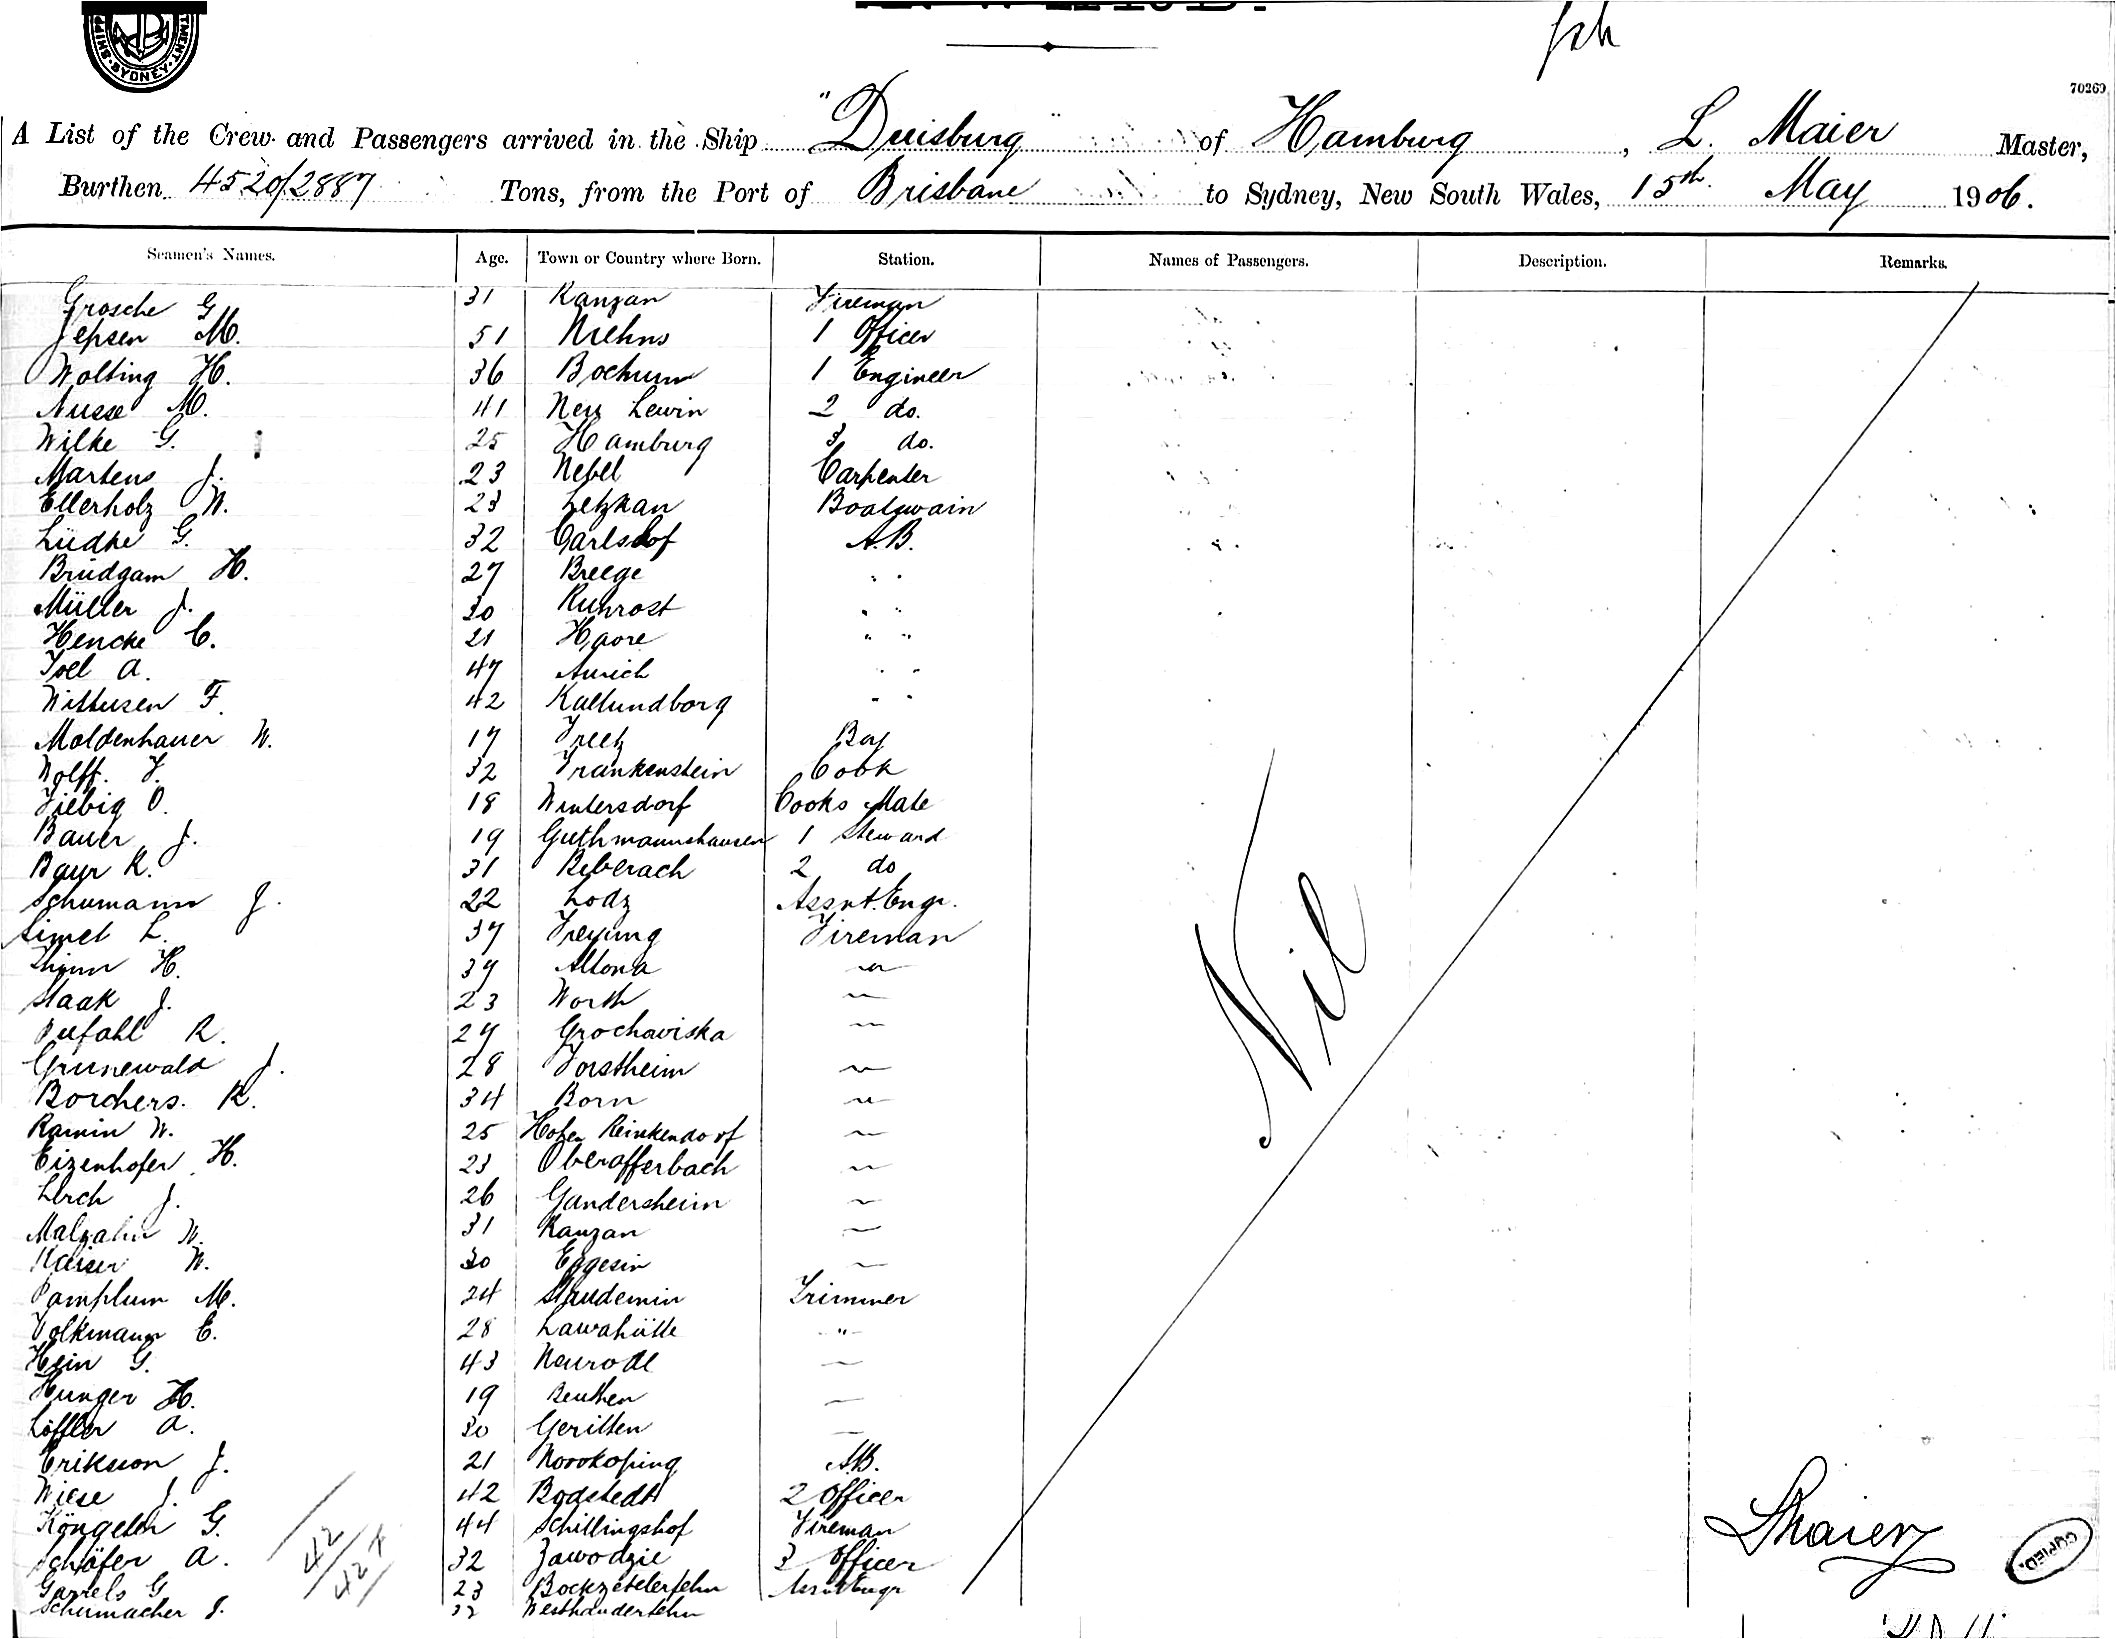 SYDNEY
70269
A List of the Crew and Passengers arrived in the Ship "Duisburg" of Hamburg, L. Maier Master,
Burthen 4520/2887 Tons, from the Port of Brisbane to Sydney, New South Wales, 15th May 1906.
Seamen's Names. Age. Town or Country where Born. Station. Names of Passengers. Description. Remarks.
Grosche G 31 Kanzan Fireman
Jepsen M. 51 1 Officer
Wolting H. 36 Bochum 1 Engineer
Nusse M. 41 Neu Lewin 2 do.
Wilke G. 25 Hamburg 3 do.
Martens J. 23 Nebel Carpenter
Ellerholz W. 23 Letzkan Boatswain
Lüdke G. 32 Carlsdof A.B.
Brüdgam H. 27 Breege " "
Müller J. 30 Ruhrost " "
Hencke C. 21 " "
Joel A. 47 Aurich " "
Wittusen F. 42 Kallundborg " "
Moldenhauer W. 17 Boy
Wolff. F. 32 Frankenstein Cook
Fiebig O. 18 Wintersdorf Cooks Mate
Bauer J. 19 Guthmannshausen 1 Steward
Bayr R. 31 Biberach 2 do
Schumann J. 22 Lodz Assnt. Engr.
Simet L. 37 Freyung Fireman
Thimm H. 37 Altona "
Staak J. 23 Worth "
Pufahl R. 27 Grochaviska "
Grunewald J. 28 Forstheim "
Borchers. R. 34 Born "
Ramin W. 25 Hohen Reinkendorf "
Eizenhofer H. 23 Oberafferbach "
Lerch J. 26 Gandersheim "
Malzahn W. 31 Kanzan "
Kaiser W. 30 Eggesin "
Pamplum M. 24 Trimmer
Volkmann E. 28 Lawahütte "
Hein G. 43 Neurode "
Hunger H. 19 Beuthen "
Löffler A. 30 Geritten "
Erikson J. 21 Norokoping A.B.
Wiese J. 42 Bodstedt 2 Officer
Köngeter G. 44 Schillingshof Fireman
Schäfer A. 32 Zawodzie 3 Officer
Garrels G 23 Bockzetelerfehn Assnt Engr
Schumacher J. Westhauderfehn
Nil
42
42 +
L Maier
COPIED.